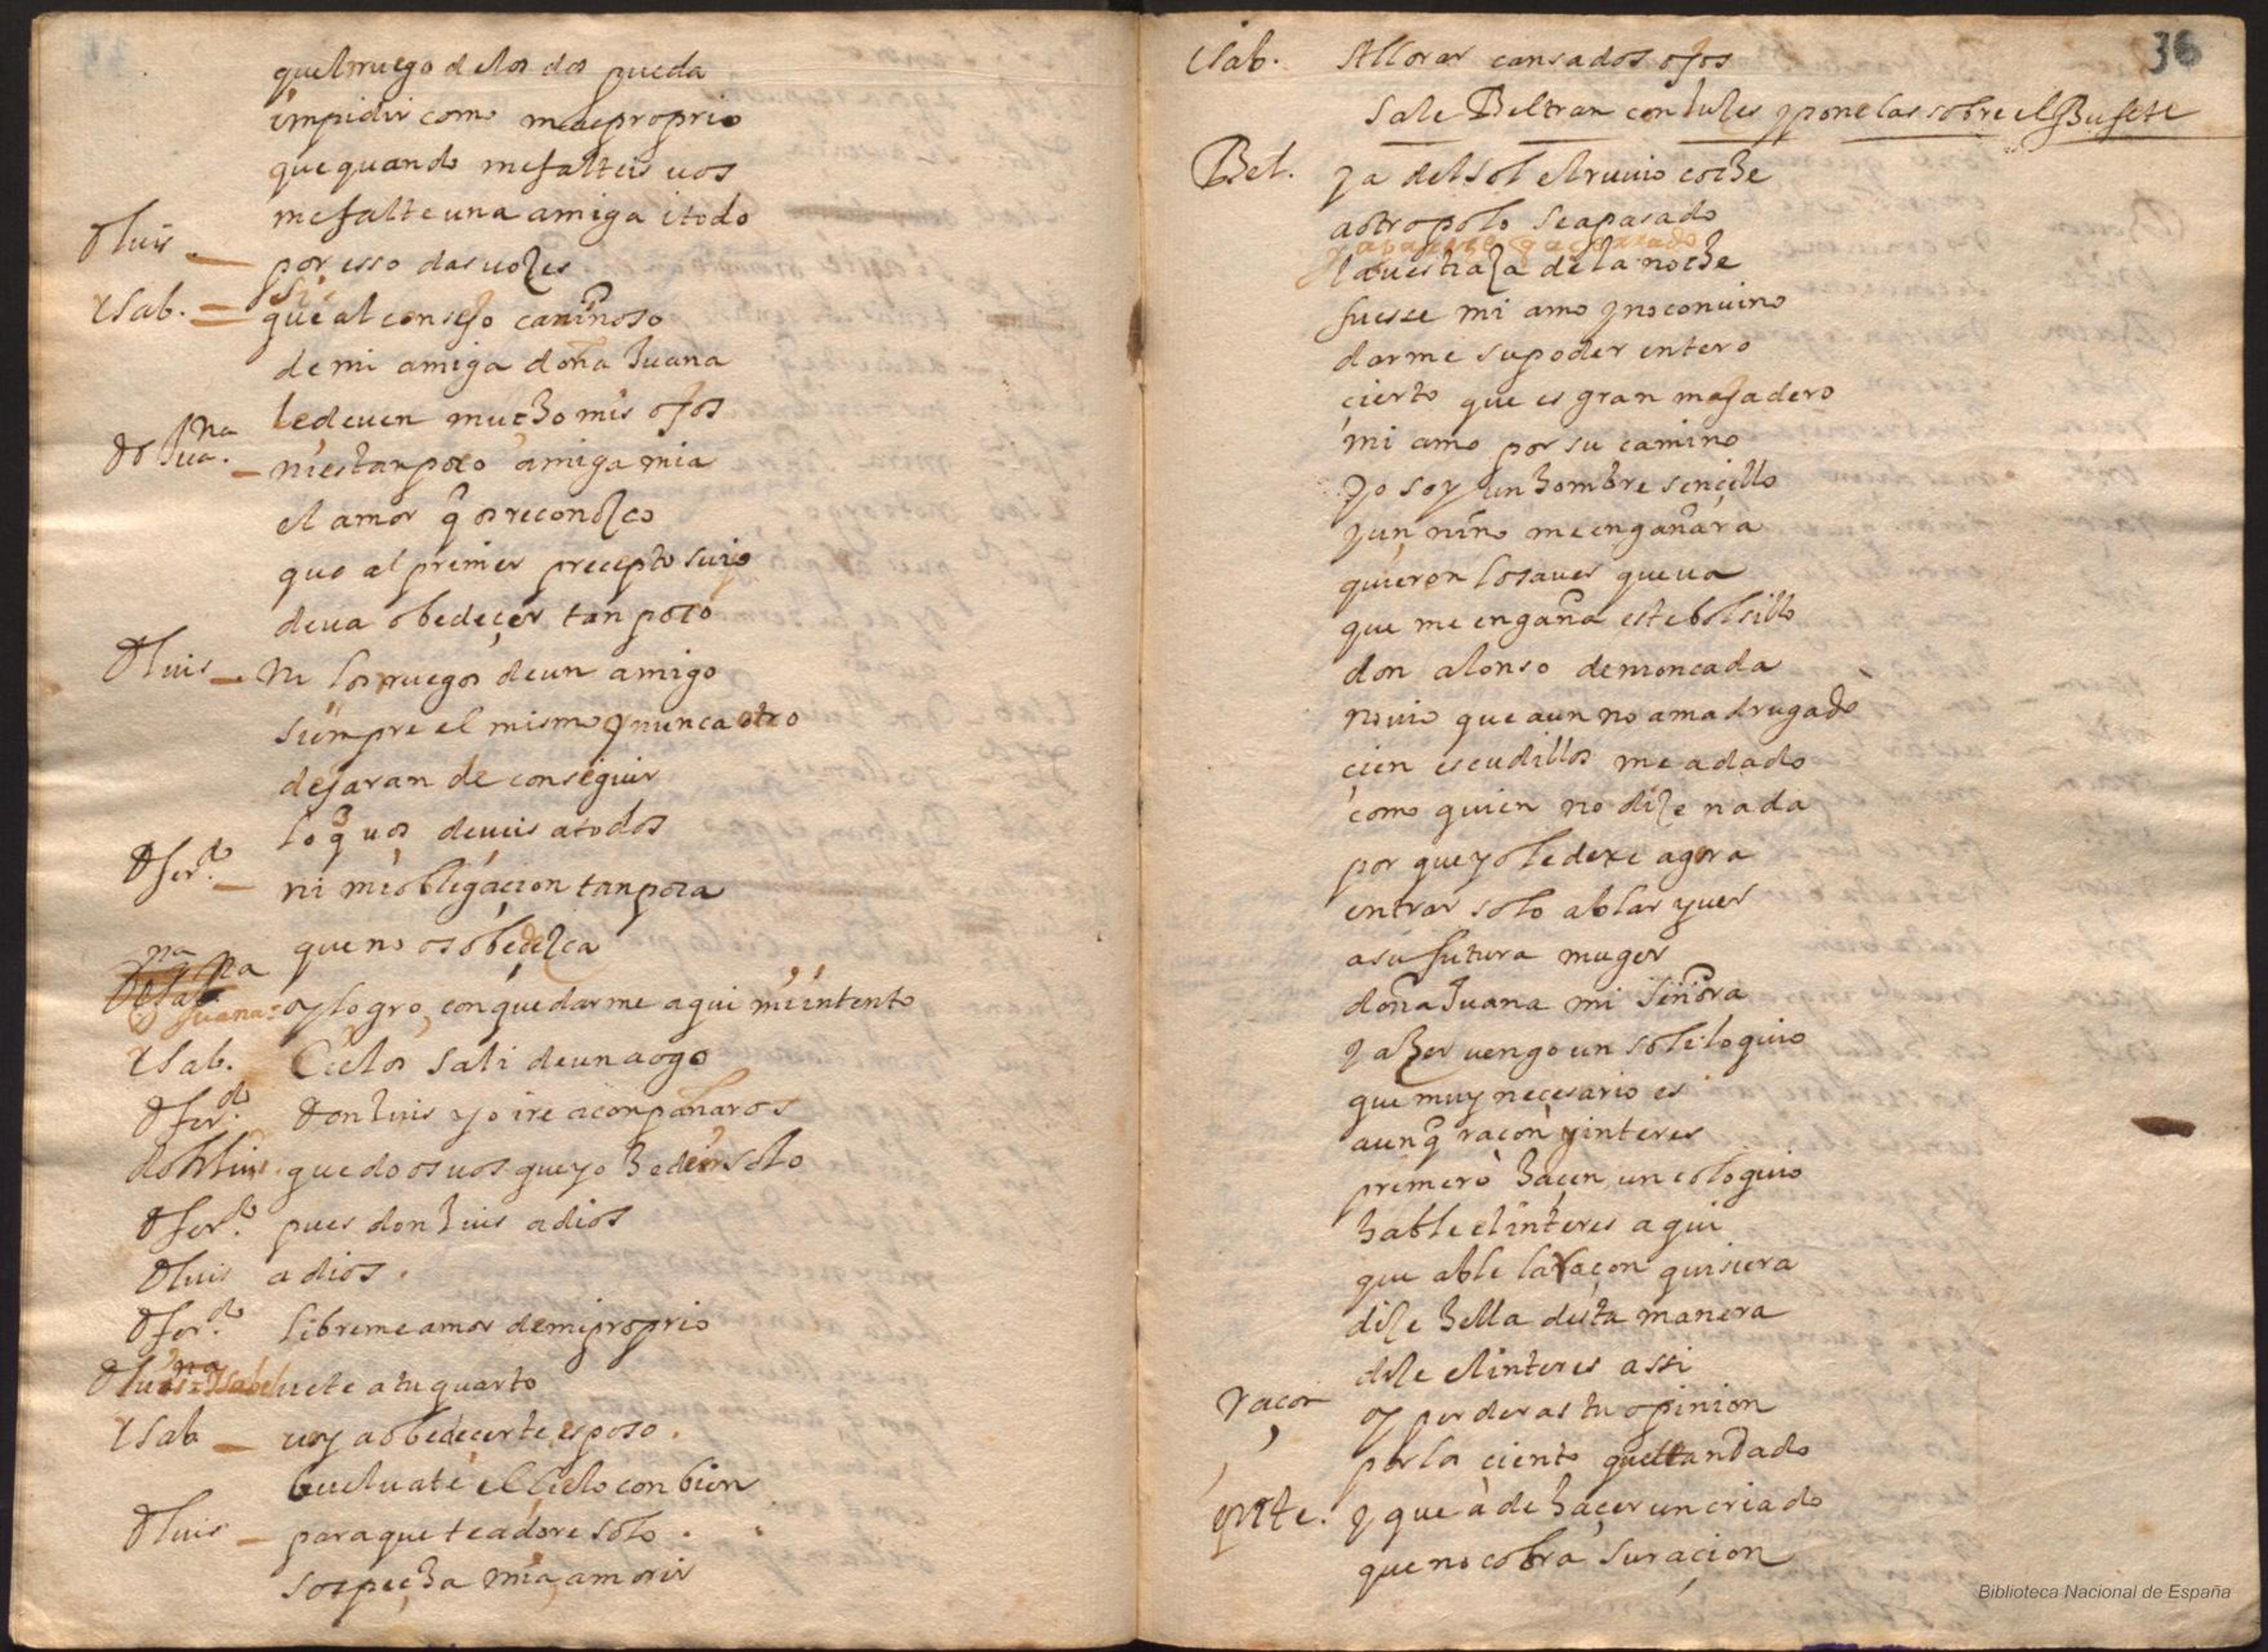 quel rruego de los dos pueda
impidir como mede proprio
que quando me falteis uos
me falte una amiga i todo
D luis — por esso das uozes
Sí
Ysab. = que al consejo cariñoso
de mi amiga doña Juana
le deuen mucho mis ojos
Dª Juana. — ni es tan poco amiga mia
el amor q̃ os reconozco
que al primer precepto suio
deua obedeçer tan poco
D luis — Ni los ruegos de un amigo
siempre el mismo y nunca otro
dejaran de conseguir
lo q̃ uos deueis a todos
D fer.do — ni mi obligaçion tan poca
que no os obedezca
Juana = oy logro, con quedarme aqui mi intento
Ysab. Cielos sali de un aogo
D fer.do don luis yo ire a conpañaros
don luis. quedoos uos que yo he de ir solo
D fer.do pues don luis a dios
D luis a dios.
D fer.do libreme amor de mi proprio
D luis = Ysabel uete a tu quarto
Ysab — uoy a obedeçerte esposo.
bueluate el Çielo con bien
D luis — para que te adore solo.
sospecha mia a morir
36
Ysab. A llorar cansados ojos
Sale Beltran con luzes y ponelas sobre el Bufete
Bel. ya del sol el ruuio coche
a otro polo se a pasado
la uestiaza de la noche
fuesse mi amo y no conuino
darme su poder entero
cierto que es gran majadero
mi amo por su camino
yo soy un hombre sençillo
y un niño me engañara
quieren lo sauer que ua
que me engaña este bolsillo
don alonso de moncada
nouio que aun no a madrugado
çien escudillos me a dado
como quien no dize nada
por que yo le dexe agora
entrar solo ablar y uer
a su futura muger
doña Juana mi señora
y azer uengo un soliloquio
que muy neçesario es
aunq̃ raçon y interes
primero haçen un coloquio
hable el interes aqui
que able la raçon quisiera
dize hella desta manera
dize el interes assi
raçon oy perderas tu opinion
por los ciento que te an dado
ynte. y que a de haçer un criado
que no cobra su raçion
Biblioteca Nacional de España